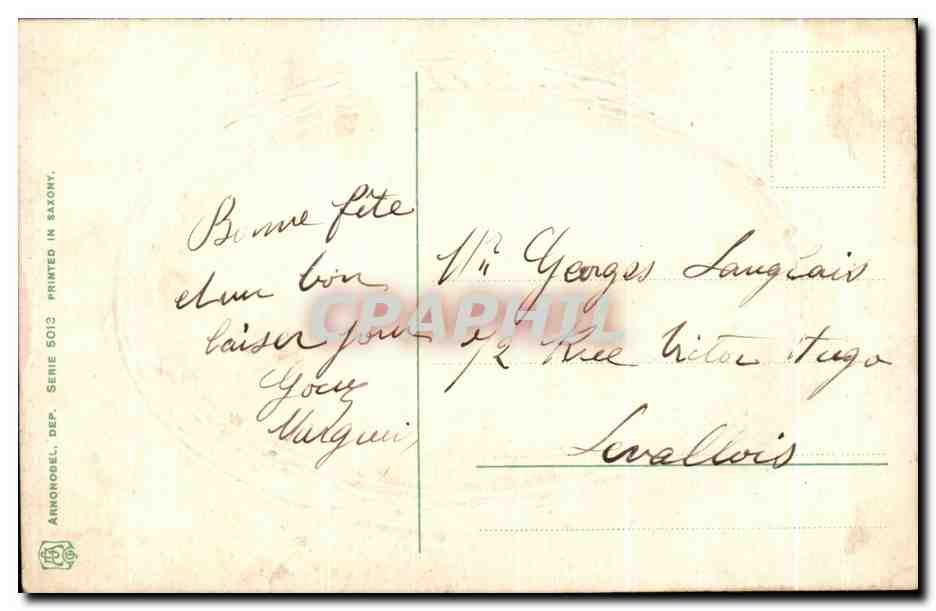 Bonne fête
et un bon
baiser pour
Marguerit
Mr Georges Langlais
72 Rue Victor Hugo
Levallois
ARNONOBEL, DEP. SERIE 5013 PRINTED IN SAXONY.
CPARHIL